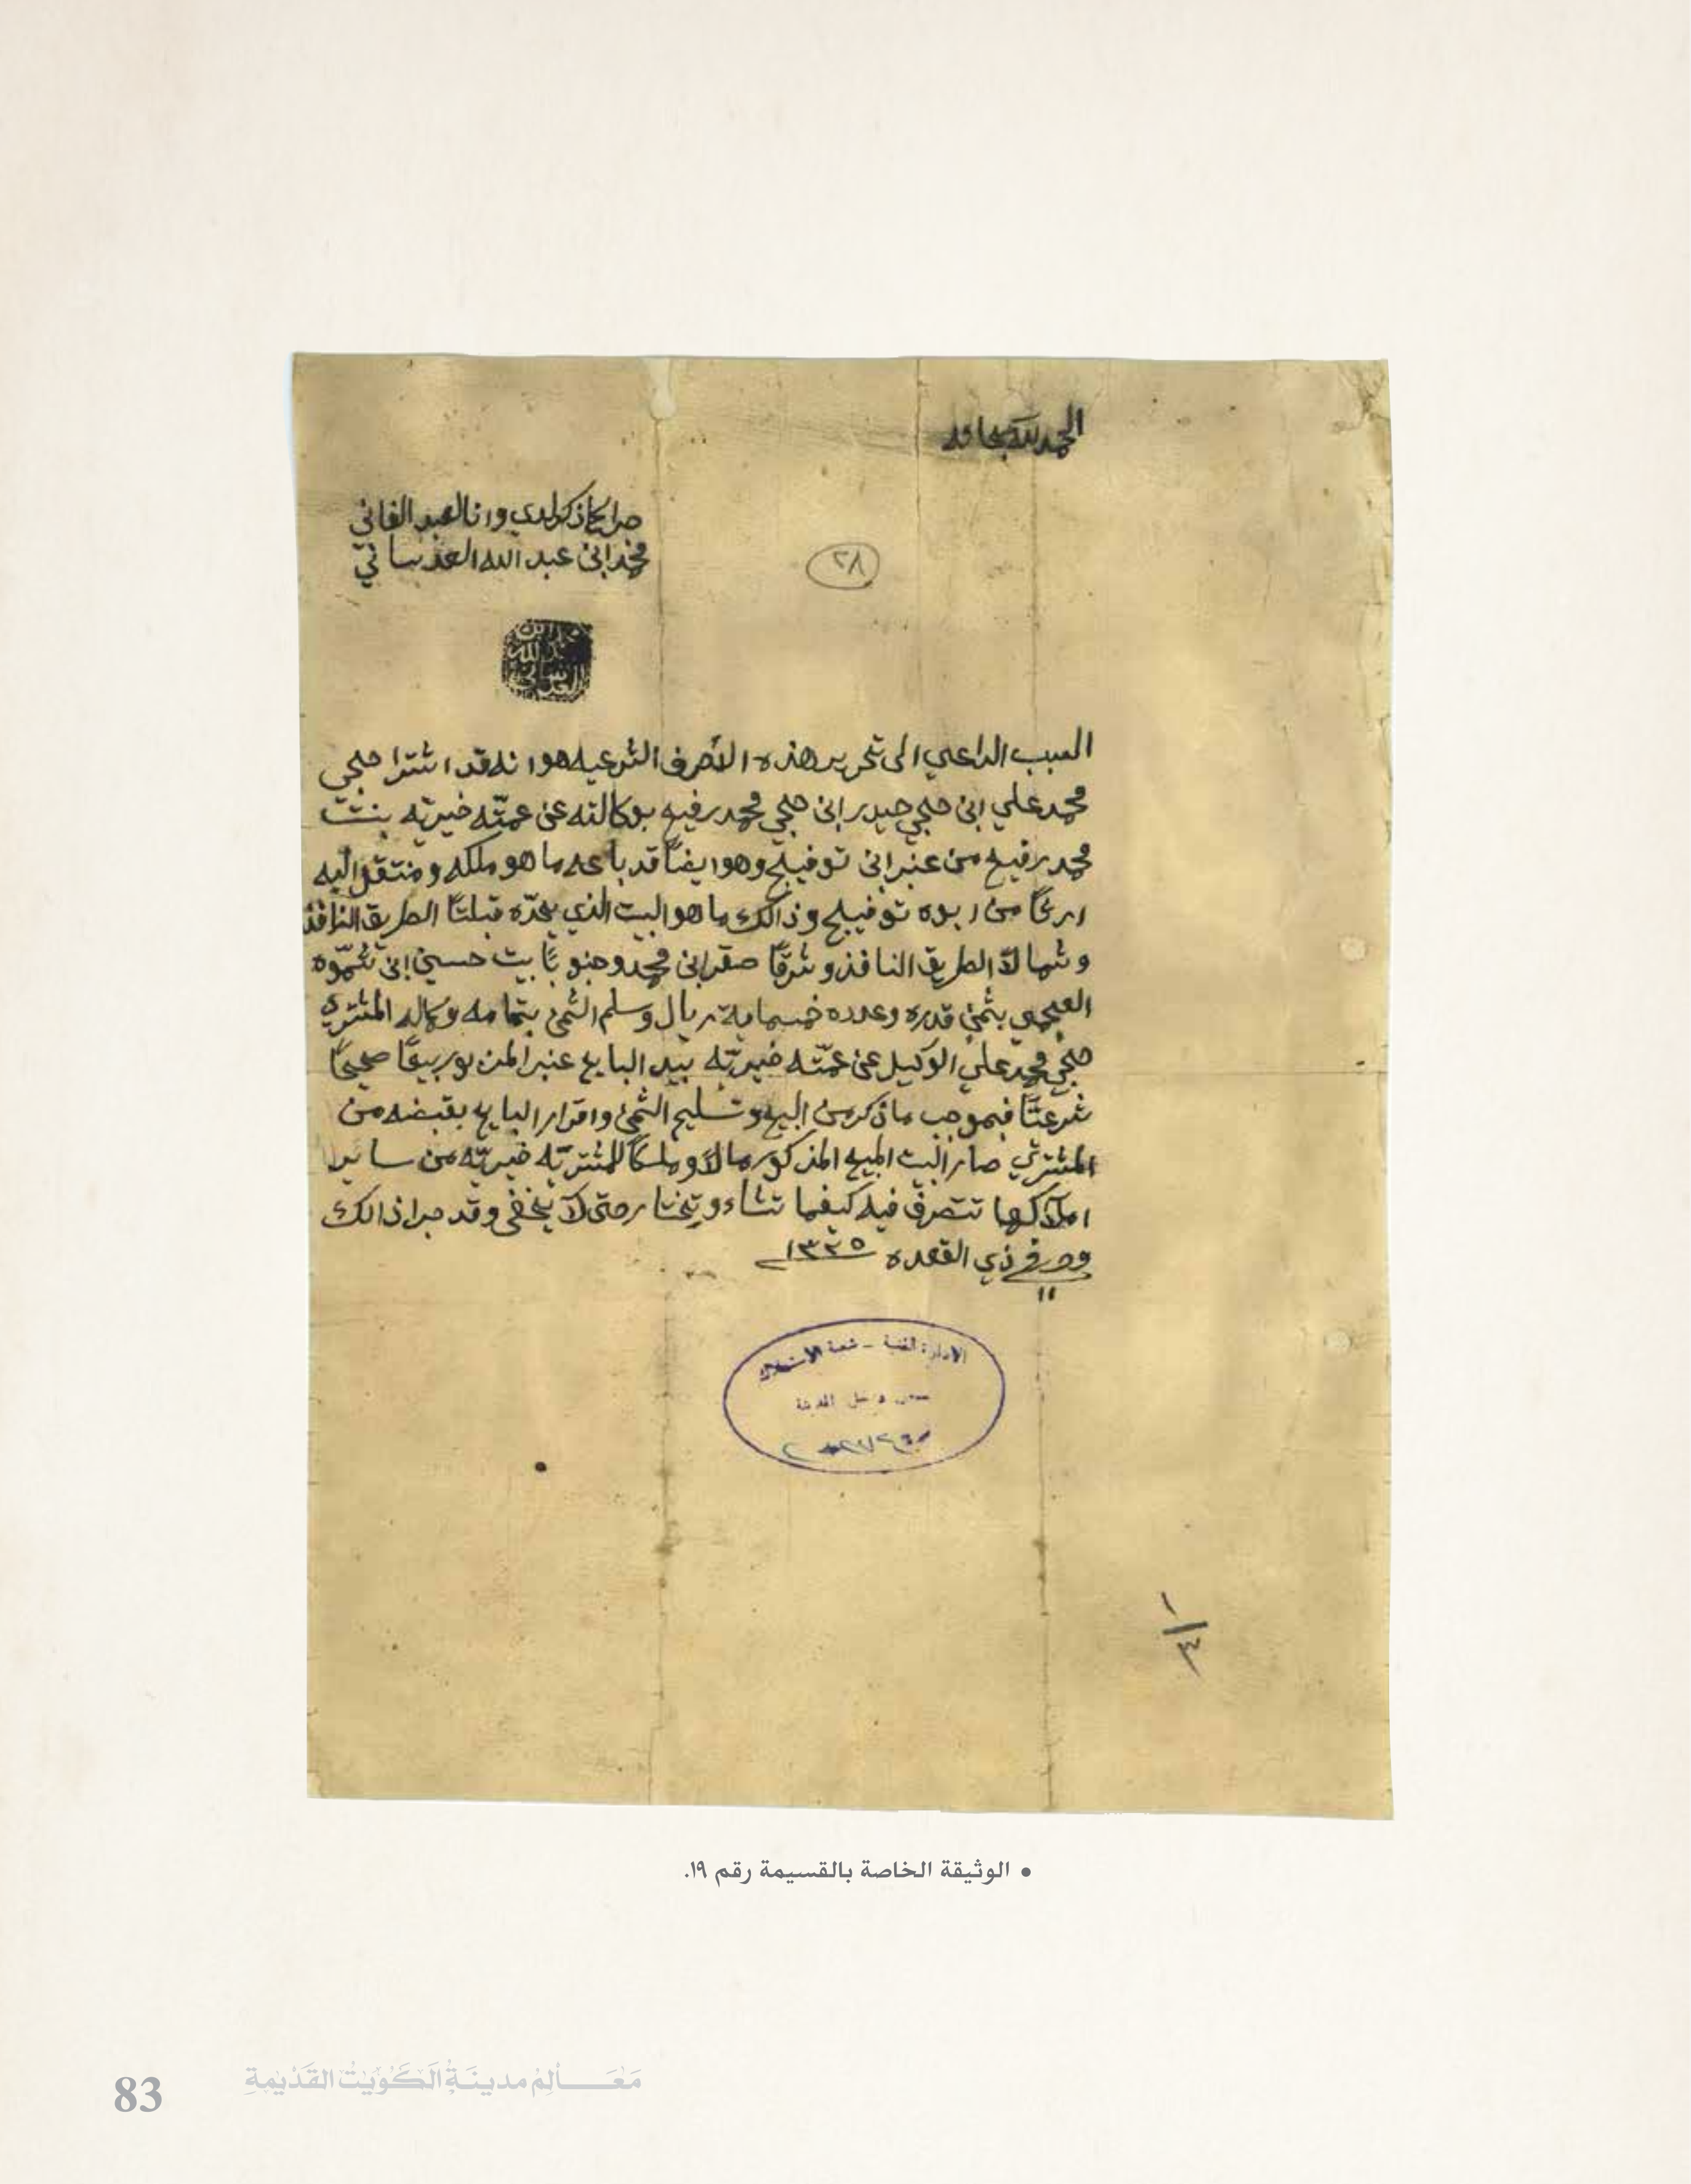 الحمد لله سبحانه
جرا كما ذكر لدي وانا العبد الفاني
محمد ابن عبد الله العدساني
٢٨
محمد ابن
عبد الله
العدساني
السبب الداعي الى تحرير هذه الأحرف الشرعيه هو انه قد اشترا حجي
محمد علي ابن حجي حيدر ابن حجي محمد رفيع بوكالته عن عمّته خيريّه بنت
محمد رفيع من عنبر ابن توفيج وهو ايضاً قد باعه ما هو ملكه ومنتقل اليه
ارثاً من ابوه توفيج وذالك ما هو البيت الذي يحدّه قبلتاً الطريق النافذ
وشمالاً الطريق النافذ وشرقاً صقر ابن محمد وجنوباً بيت حسين ابن شموّه
العجمي بثمن قدره وعدده خمسماية ريال وسلم الثمن بتمامه وكماله المشتري
حجي محمد علي الوكيل عن عمّته خيريّه بيد البايع عنبر المزبور بيعاً صحيحاً
شرعيّاً فبموجب ما ذكر من البيع وتسليم الثمن واقرار البايع بقبضه من
المشتري صار البيت المبيع المذكور مالاً وملكاً للمشتريّه خيريّه من ساير
املاكها تتصرف فيه كيفما تشاء وتختار حتى لا يخفى وقد جرا ذالك
في ذي القعده ١٣٣٥
١١
الادارة الفنية - شعبة الاستملاك
داخل المدينة
١/٣
• الوثيقة الخاصة بالقسيمة رقم ١٩.
مَعَالِم مدينَة الكُويْت القَدْيمةِ
83